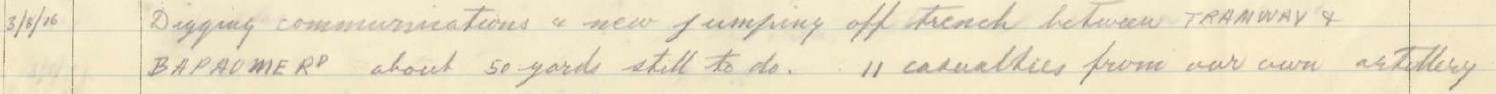 3/8/16 Digging communications & new jumping off trench between TRAMWAY &
BAPAUME RD about 50 yards still to do. 11 casualties from our own artillery